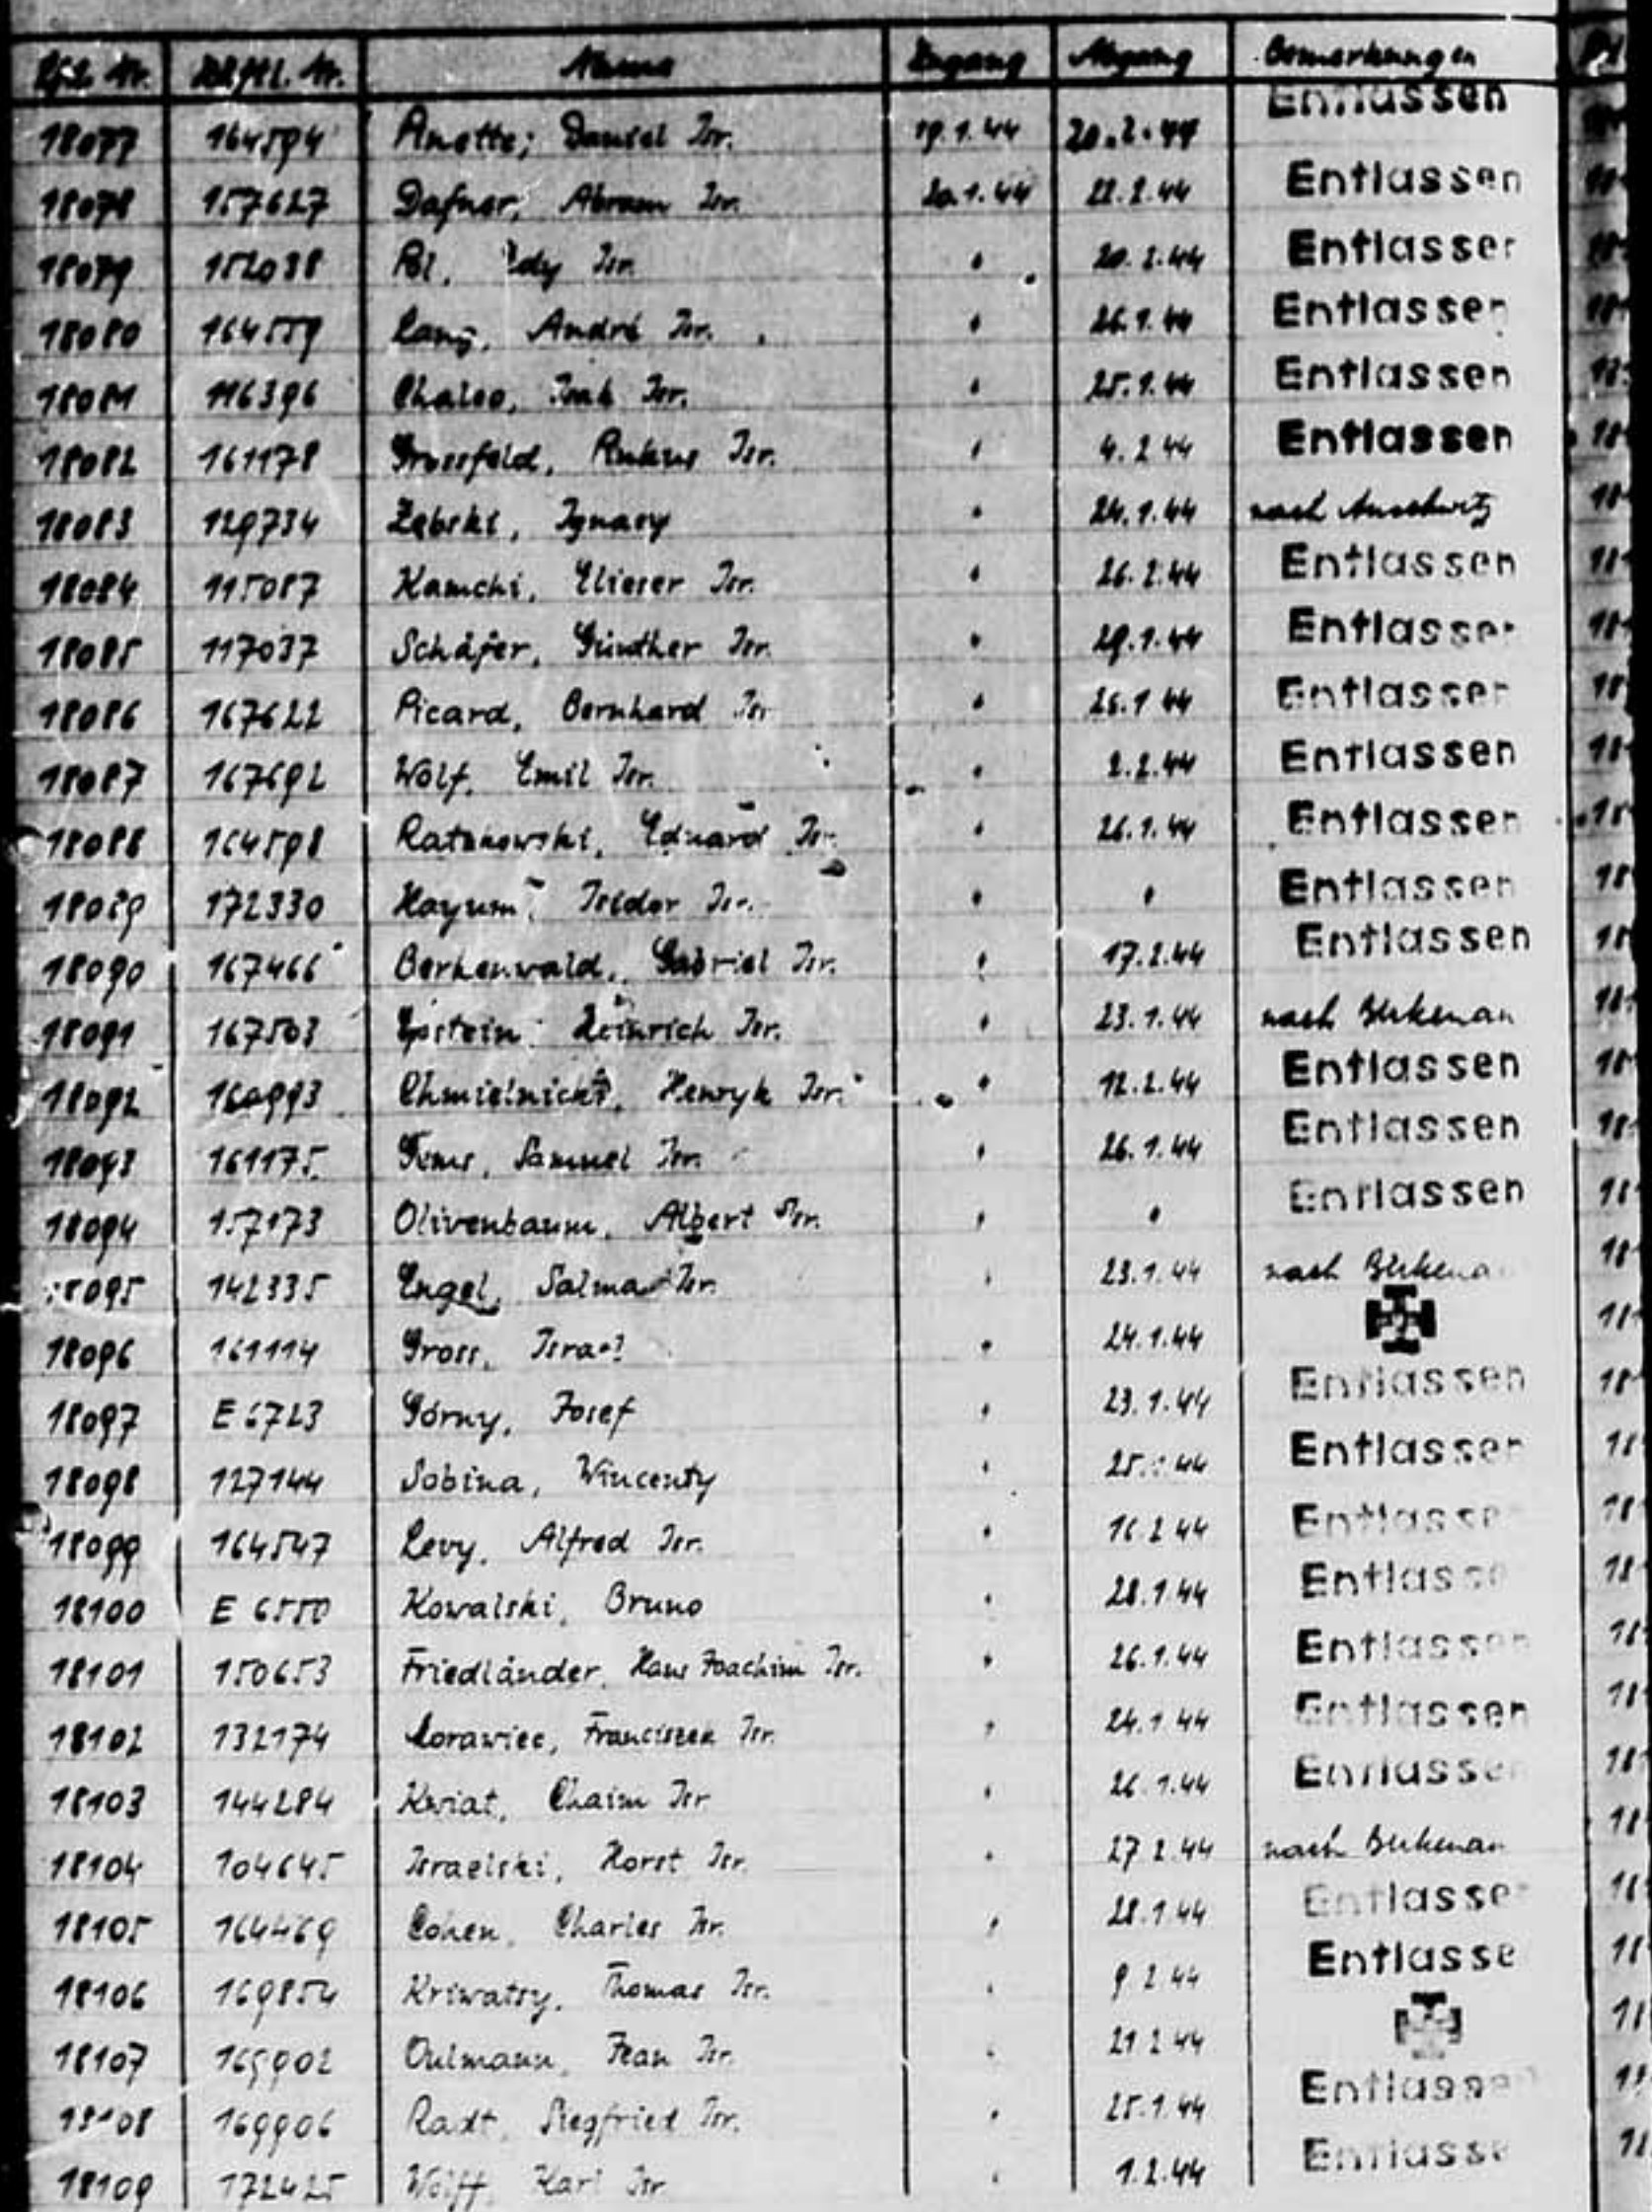 Lfd. Nr. Häftl. Nr. Name Zugang Abgang Bemerkungen
18077 164594 Anette, Daniel Isr. 19.1.44 20.2.44 Entlassen
18078 157627 Dafner, Abram Isr. 20.1.44 22.2.44 Entlassen
18079 152038 Pol, Isr. " 20.2.44 Entlassen
18080 164559 Lang, André Isr. " 26.1.44 Entlassen
18081 116396 Isr. " 25.1.44 Entlassen
18082 161178 Grossfeld, Isr. " 4.2.44 Entlassen
18083 129734 Zębski, Ignacy " 24.1.44 nach Auschwitz
18084 115087 Kamchi, Elieser Isr. " 26.2.44 Entlassen
18085 117037 Schäfer, Günther Isr. " 29.1.44 Entlassen
18086 167622 Picard, Bernhard Isr " 26.1.44 Entlassen
18087 167692 Wolf, Emil Isr. " 2.2.44 Entlassen
18088 164598 Ratanowski, Eduard Isr. " 26.1.44 Entlassen
18089 172330 Hayum, Isidor Isr. " " Entlassen
18090 167466 Berkenwald, Gabriel Isr. " 17.2.44 Entlassen
18091 167503 Epstein, Heinrich Isr. " 23.1.44 nach Birkenau
18092 160993 Chmielnicki, Henryk Isr. " 12.2.44 Entlassen
18093 161175 Samuel Isr. " 26.1.44 Entlassen
18094 157173 Olivenbaum, Albert Isr. " " Entlassen
18095 142335 Engel, Salma Isr. " 23.1.44 nach Birkenau
18096 161114 Gross, Israel " 24.1.44
18097 E 6723 Górny, Josef " 23.1.44 Entlassen
18098 127144 Sobina, Wincenty " 25. 44 Entlassen
18099 164547 Levy, Alfred Isr. " 16.2.44 Entlassen
18100 E 6550 Kowalski, Bruno " 28.1.44 Entlassen
18101 150653 Friedländer, Hans Joachim Isr. " 26.1.44 Entlassen
18102 132174 Morawiec, Franciszek Isr. " 24.1.44 Entlassen
18103 144284 Kwiat, Chaim Isr " 26.1.44 Entlassen
18104 104645 Israelski, Horst Isr. " 27.2.44 nach Birkenau
18105 164469 Cohen, Charles Isr. " 28.1.44 Entlassen
18106 169854 Kriwatsy, Thomas Isr. " 9.2.44 Entlassen
18107 169902 Oulmann, Jean Isr. " 21.2.44
18108 169906 Radt, Siegfried Isr. " 25.1.44 Entlassen
18109 172425 Wolff, Karl Isr " 1.2.44 Entlassen